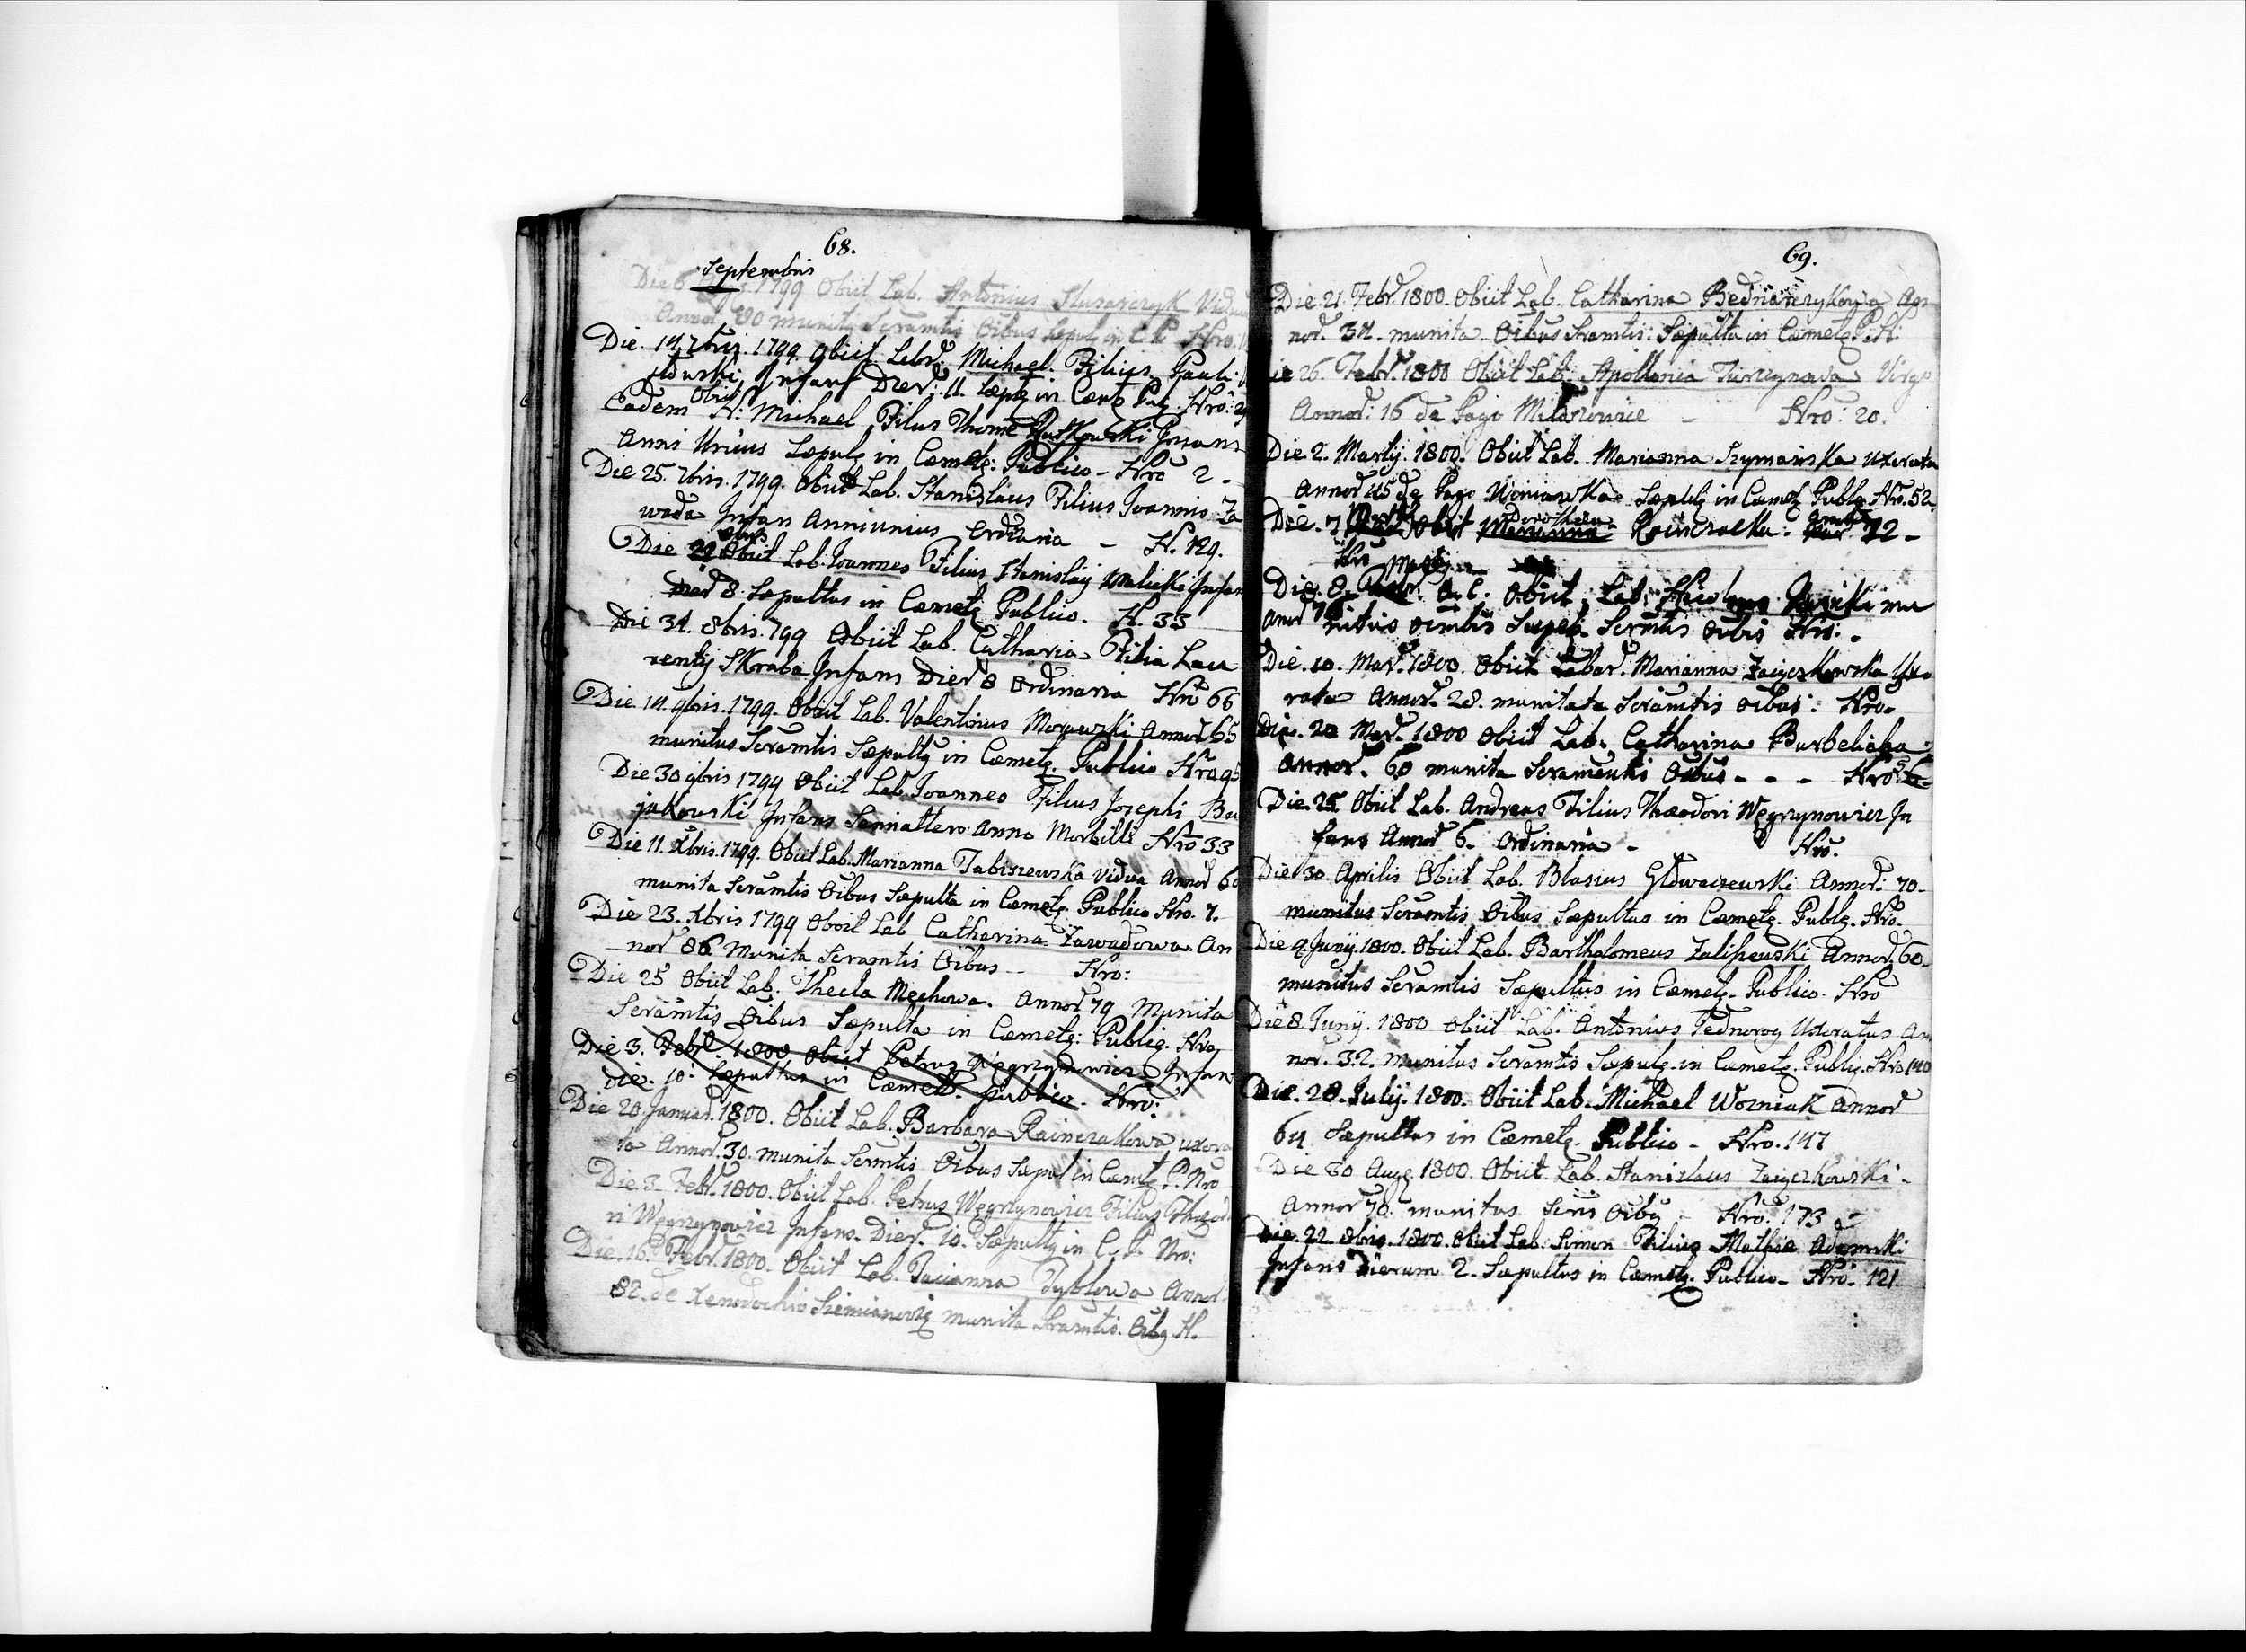 68.
Septembris
Die 6 1799 Obiit Lab. Antonius Slusarczyk
Annor. 80 munitg Scramtis Oibus Sepul in C P Nro.
Die. 14. 7bris. 1799. obiit. Labor. Michael. Filius. Pauli.
Infans Dier: 11. Sepulg in Cœmt Nro:
Obiit
Eadem H: Michael Filus Thomę Infans
Anni Unius Sepulg in Cœmetg: Publico - Nro 2 -
Die 25. 7bris. 1799. Obiit Lab. Stanislaus Filius Joannis Za
wada Infan Anniunius Ordinaria - N. 129.
8bris
Die 29 Obiit Lab. Joannes Filius Stanislaij Malicki Infan
Dier 8. Sepultus in Cœmetg Publico. N. 33
Die 31. 8bris. 799 Obiit Lab. Catharia Filia Lau
rentij Skraba Infans Dier 8 Ordinaria Nro 66
Die 14. 9bris. 1799. Obiit Lab. Valentinus Morawski Annor 65
munitus Scramtis Sæpultg in Cœmetg. Publico Nro 95
Die 30 9bris 1799 Obiit Lab. Joannes Filius Josephi Bu
jakowski Infans Semialtero Anno Morbilli Nro 33
Die 11. Xbris. 1799. Obiit Lab. Marianna Tabiszewska vidua Annor 60
munita Scramtis Oibus Sæpulta in Cœmetg. Publico Nro. 7.
Die 23. Xbris 1799 Obiit Lab Catharina Zawadowa An
nor 86 Munita Scramtis Oibus - - Nro:
Die 25 Obiit Lab. Thecla Męchowa. Annor 79 Munita
Scramtis Oibus Sæpulta in Cœmetg: Publig. Nro
Die 3. Febr. 1800 Obiit Petrus Węgrzynowicz Infans
Die. 10. Sæpultus in Cœmetg. Publico. Nro:
Die 20. Januar. 1800. Obiit Lab. Barbara Rainczakowa uxora
ta Annor. 30. munita Scrmtis Oibus Sæpul in Cœmtg P. Nro
Die 3 Febr. 1800. Obiit Lab. Petrus Węgrzynowicz Filius Theodo
ri Węgrzynowicz Infans. Dier. 10. Sæpultg in C. P. Nro:
Die. 16. Febr. 1800. Obiit Lab. Dyblowa Annor.
82. de Xenodochio munita Sramtis. Oibg N.
69.
Die 21. Febr. 1800. Obiit Lab. Catharina Bednarczykowa An
nor. 34. munita Oibus Sramtis: Sæpulta in Cœmetg: P. N:
ie 26. Febr. 1800 Obiit Lab. Apollonia Virgo
Annor: 16 de Pago - Nro: 20.
Die 2. Martij. 1800. Obiit Lab. Marianna Szymańska uxorata
Annor 45 de Pago Sæpulg in Cœmetg Publg. Nro. 52
Dorothea
Die. 7 Obiit Marianna Rainczalka: 22 -
Nro
Die. 8. a. c. Obiit Lab.
Annor 76 nitus omibs Sepelt Scrmtis Oibis Nro: -
Die. 10. Mar. 1800. Obiit Labor. Marianna Zaiączkowska Uxo
rata Annor. 28. munitata Scramtis Oibus: Nro.
Die. 20 Mar. 1800 Obiit Lab. Catharina
Annor. 60 munita Scramentis Oibus - - - Nro.
Die. 25. Obiit Lab. Andreas Filius Thæodori Węgrzynowicz In
fans Annor 6. Ordinaria - Nro.
Die 30 Aprilis Obiit Lab. Blasius Głowaczewski Annor: 70 -
munitus Scramtis Oibus Sæpultus in Cœmetg. Publg. Nro.
Die 9. Junij. 1800. Obiit Lab. Bartholomeus Zalipewski Annor. 60 -
munitus Scramtis Sæpultus in Cœmetg. Publico. Nro
Die 8. Junij. 1800 Obiit Lab. Antonius Uxoratus An
nor. 32. munitus Scramtis Sæpulg. in Cœmetg. Publig. Nro 140
Die. 28. Julij. 1800. Obiit Lab. Michael Wozniak Annor
64 Sæpultus in Cœmetg. Publico - Nro. 147
Die 30 Aug. 1800. Obiit Lab. Stanislaus Zaiączkowski -
Annor 70 munitus Scris Oibg - Nro: 173 -
Die 22 8bris. 1800. Obiit Lab. Simon Filius Mathiæ Adamski
Infans Dierum 2. Sæpultus in Cœmetg. Publico - Nro. 121